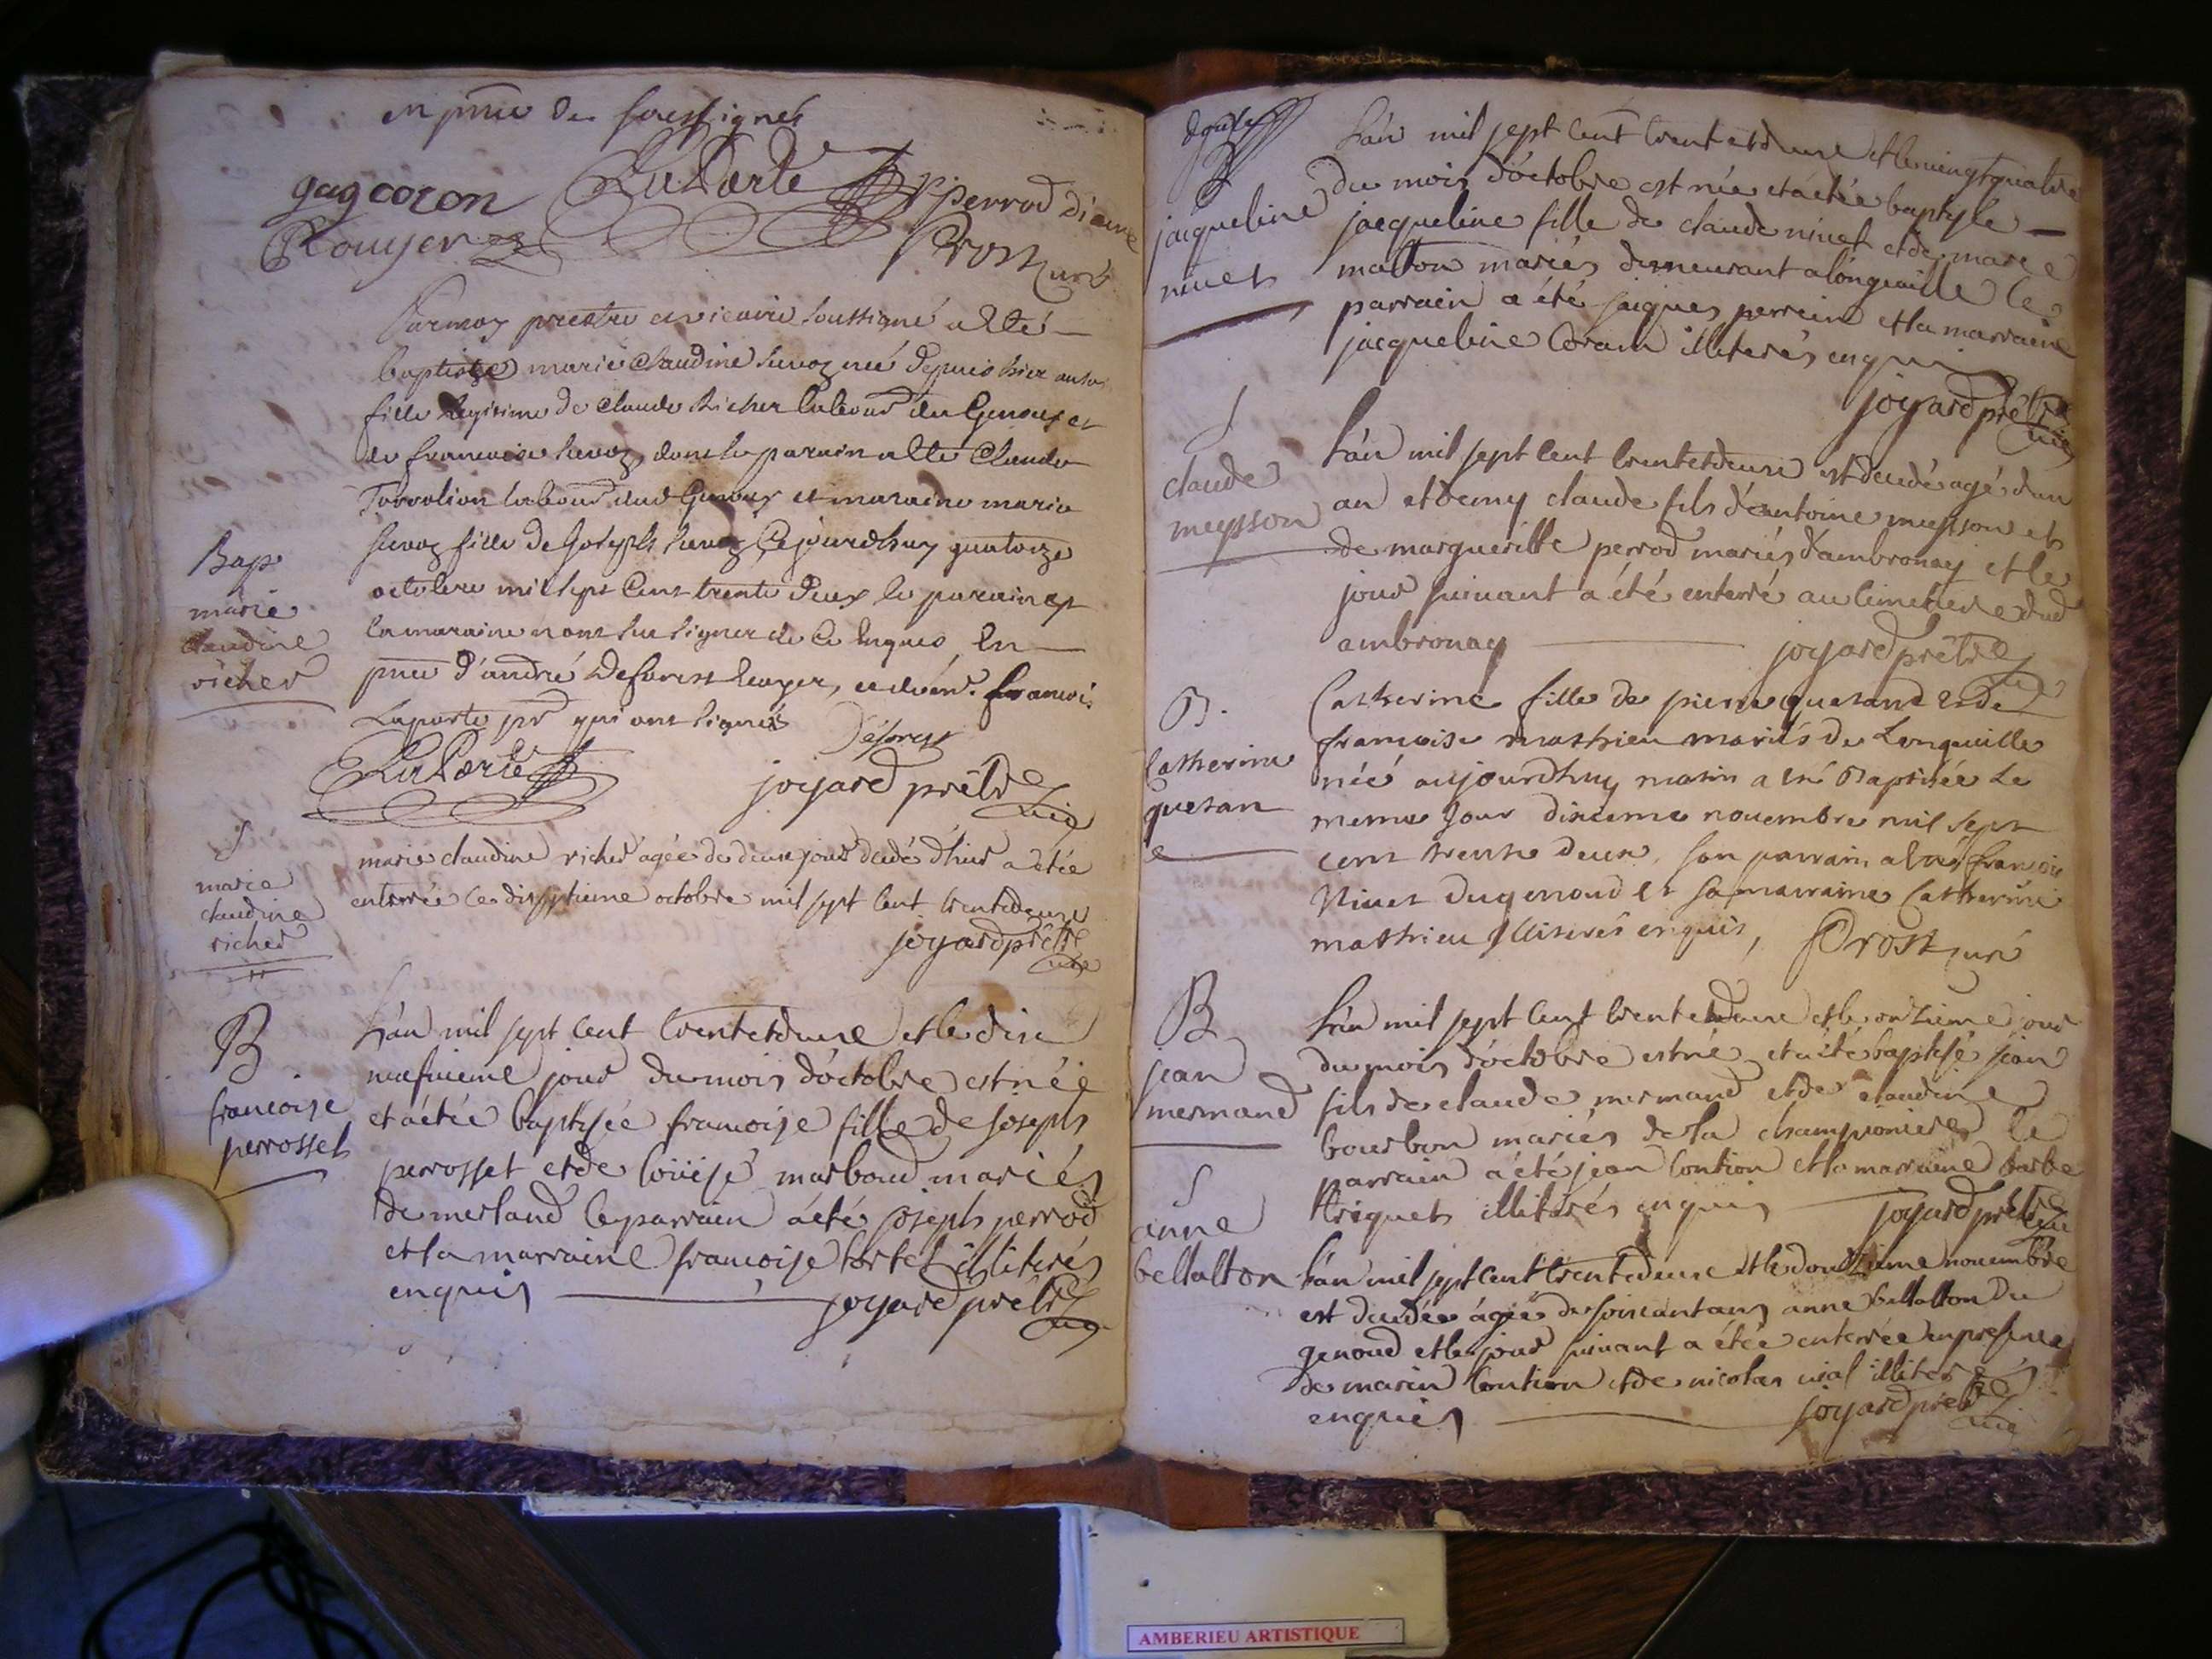 en pnce des soussignés
gag coron LaPorte P. perrod diacre
Rouyer Prost curé
Par moy prestre et vicaire soussigné a été
baptisée marie Claudine née depuis hier
fille legitime de Claude Richer labour du Genoux et
de francoise dont le parain a été Claude
labour dud Genoux et maraine marie
fille de Joseph Cejourdhuy quatorze
octobre mil sept Cens trente Deux le parain et
la maraine n'ont sçu signer de Ce enquis En
pnce d'andré Deforest et de francois
Laporte qui ont signés
LaPorte Déforest
joyard prêtre vic
Bap
marie
claudine
richer
S
marie
claudine
richer
marie claudine richer agée de deux jour decédé d'hier a etée
enterrée le dixseptieme octobre mil sept cent trentedeux
joyard prêtre vic
B
francoise
perrosset
L'an mil sept cent trentetdeux et le dix
neufvieme jour du mois d'octobre est née
et a étée baptisée francoise fille de joseph
perrosset et de loüise marboud mariés
de merland le parrain a été joseph perrod
et la marraine francoise tortel illiterés
enquis joyard prêtre vic
B
jacqueline
nivet
L'an mil sept cent trentetdeux et le vingtquatre
du mois d'octobre est née et a étée baptisée
jacqueline fille de claude nivet et de marie
matton mariés demeurant a longeville le
parrain a été jaiques perrin et la marraine
jacqueline Coram illiterés enquis
joyard prêtre vic
S
claude
meysson
L'an mil sept cent trentetdeux est decedé agé d'un
an et demy claude fils d'antoine meysson et
de margueritte perrod mariés d'ambronay et le
jour suivant a été enterré au cimetiere dud
ambronay joyard prêtre vic
B.
Catherine
quesan
e
Catherine fille de pierre quesane et de
francoise mathieu mariés de Longeville
née aujourdhuy matin a été Baptisée Le
meme jour dixieme novembre mil sept
cent trente deux, son parrain a été francois
Nivet du genoud et sa marraine Catherine
mathieu illiterés enquis, Prost curé
B
jean
mermand
L'an mil sept cent trentetdeux et le onzieme jour
du mois d'octobre est né et a été baptisé jean
fils de claude mermand et de claudine
bourbon mariés de la championiere le
parrain a été jean Contion et la marraine barbe
triquet illiterés enquis joyard prêtre vic
S
anne
bellatton
L'an mil sept cent trentedeux et le douzieme novembre
est decedée agée de soixantans anne bellatton du
genoud et le jour suivant a étée enterrée en presence
de marin Contion et de nicolas vial illiterés
enquis joyard prêtre vic
AMBERIEU ARTISTIQUE